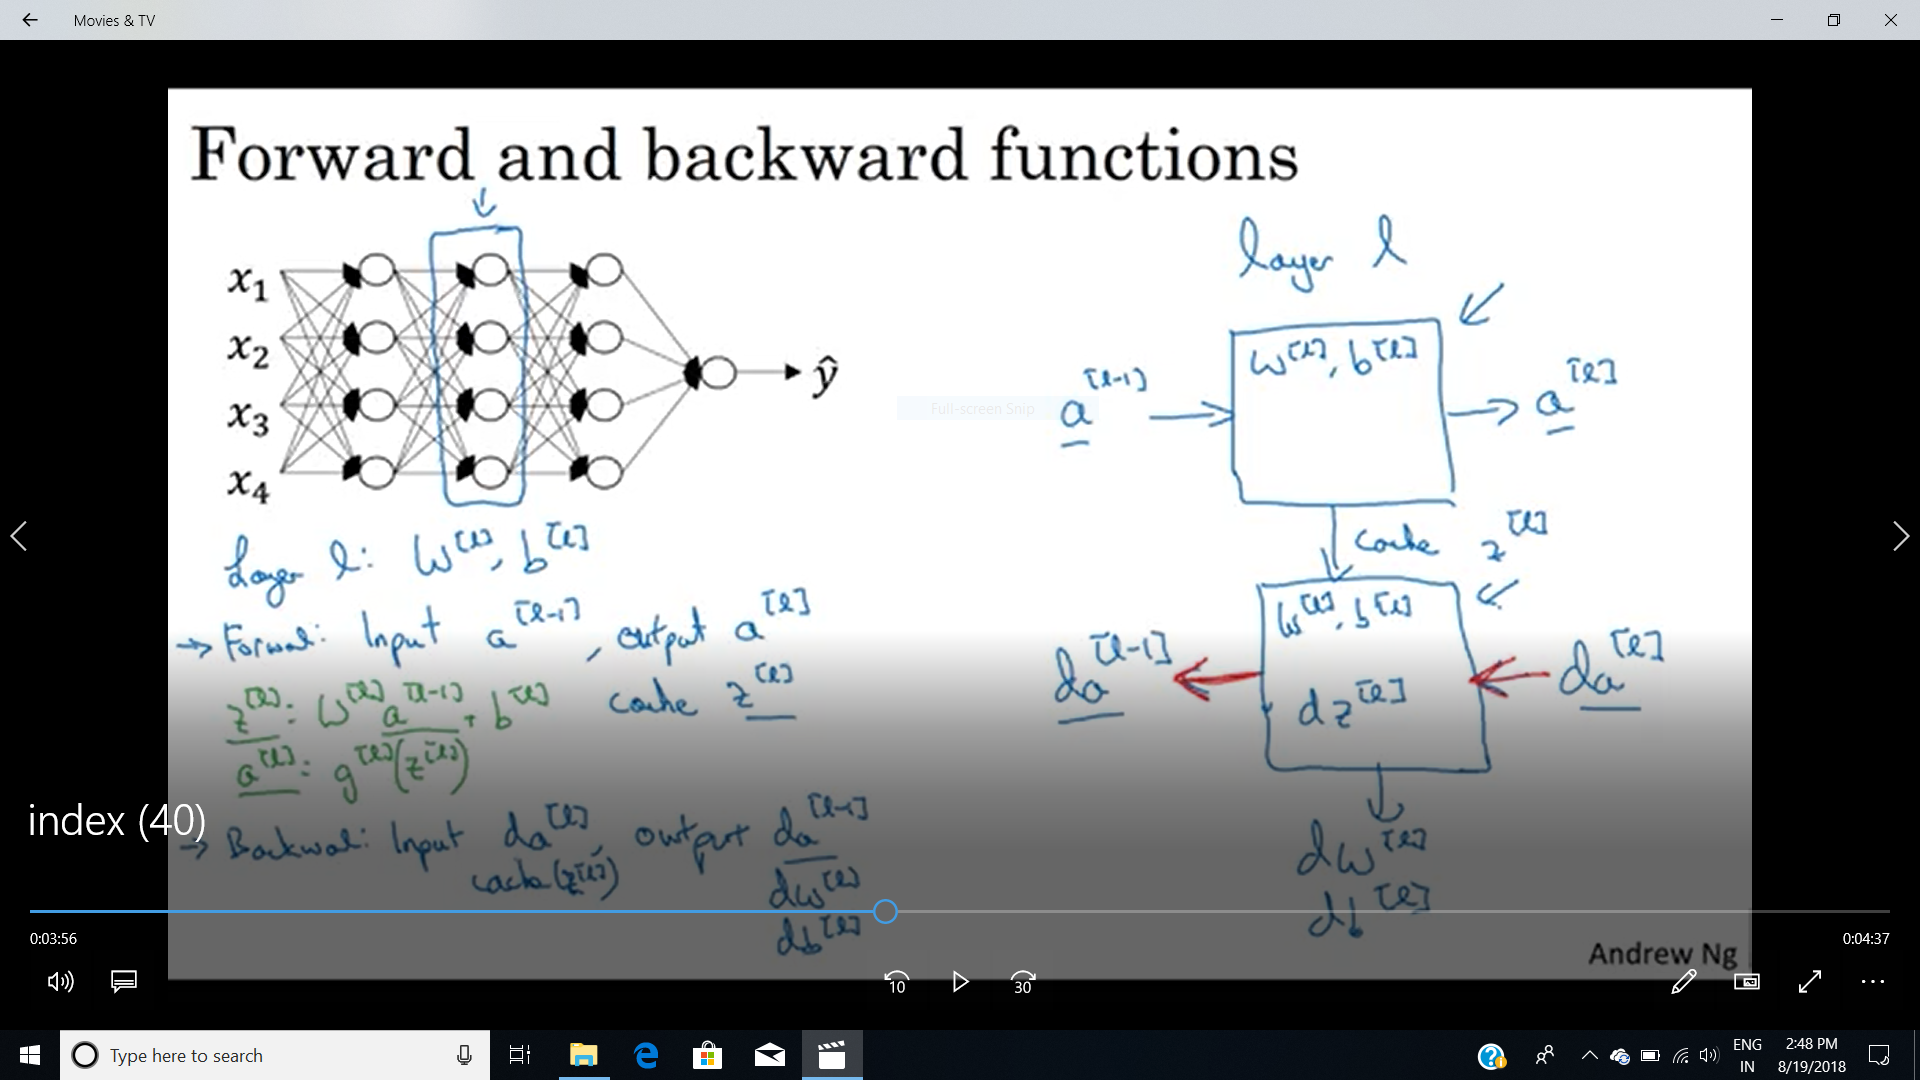 Movies & TV
Forward and backward functions
x1
x2
x3
x4
ŷ
Layer l: W[l], b[l]
→ Forward: Input a[l-1], output a[l]
cache z[l]
z[l] = W[l] a[l-1] + b[l]
a[l] = g[l](z[l])
→ Backward: Input da[l], output da[l-1]
cache(z[l])
dW[l]
db[l]
layer l
a[l-1] → W[l], b[l] → a[l]
cache z[l]
W[l], b[l]
da[l-1] ← dz[l] ← da[l]
dW[l]
db[l]
Full-screen Snip
index (40)
0:03:56
0:04:37
Andrew Ng
10
30
Type here to search
ENG
IN
2:48 PM
8/19/2018